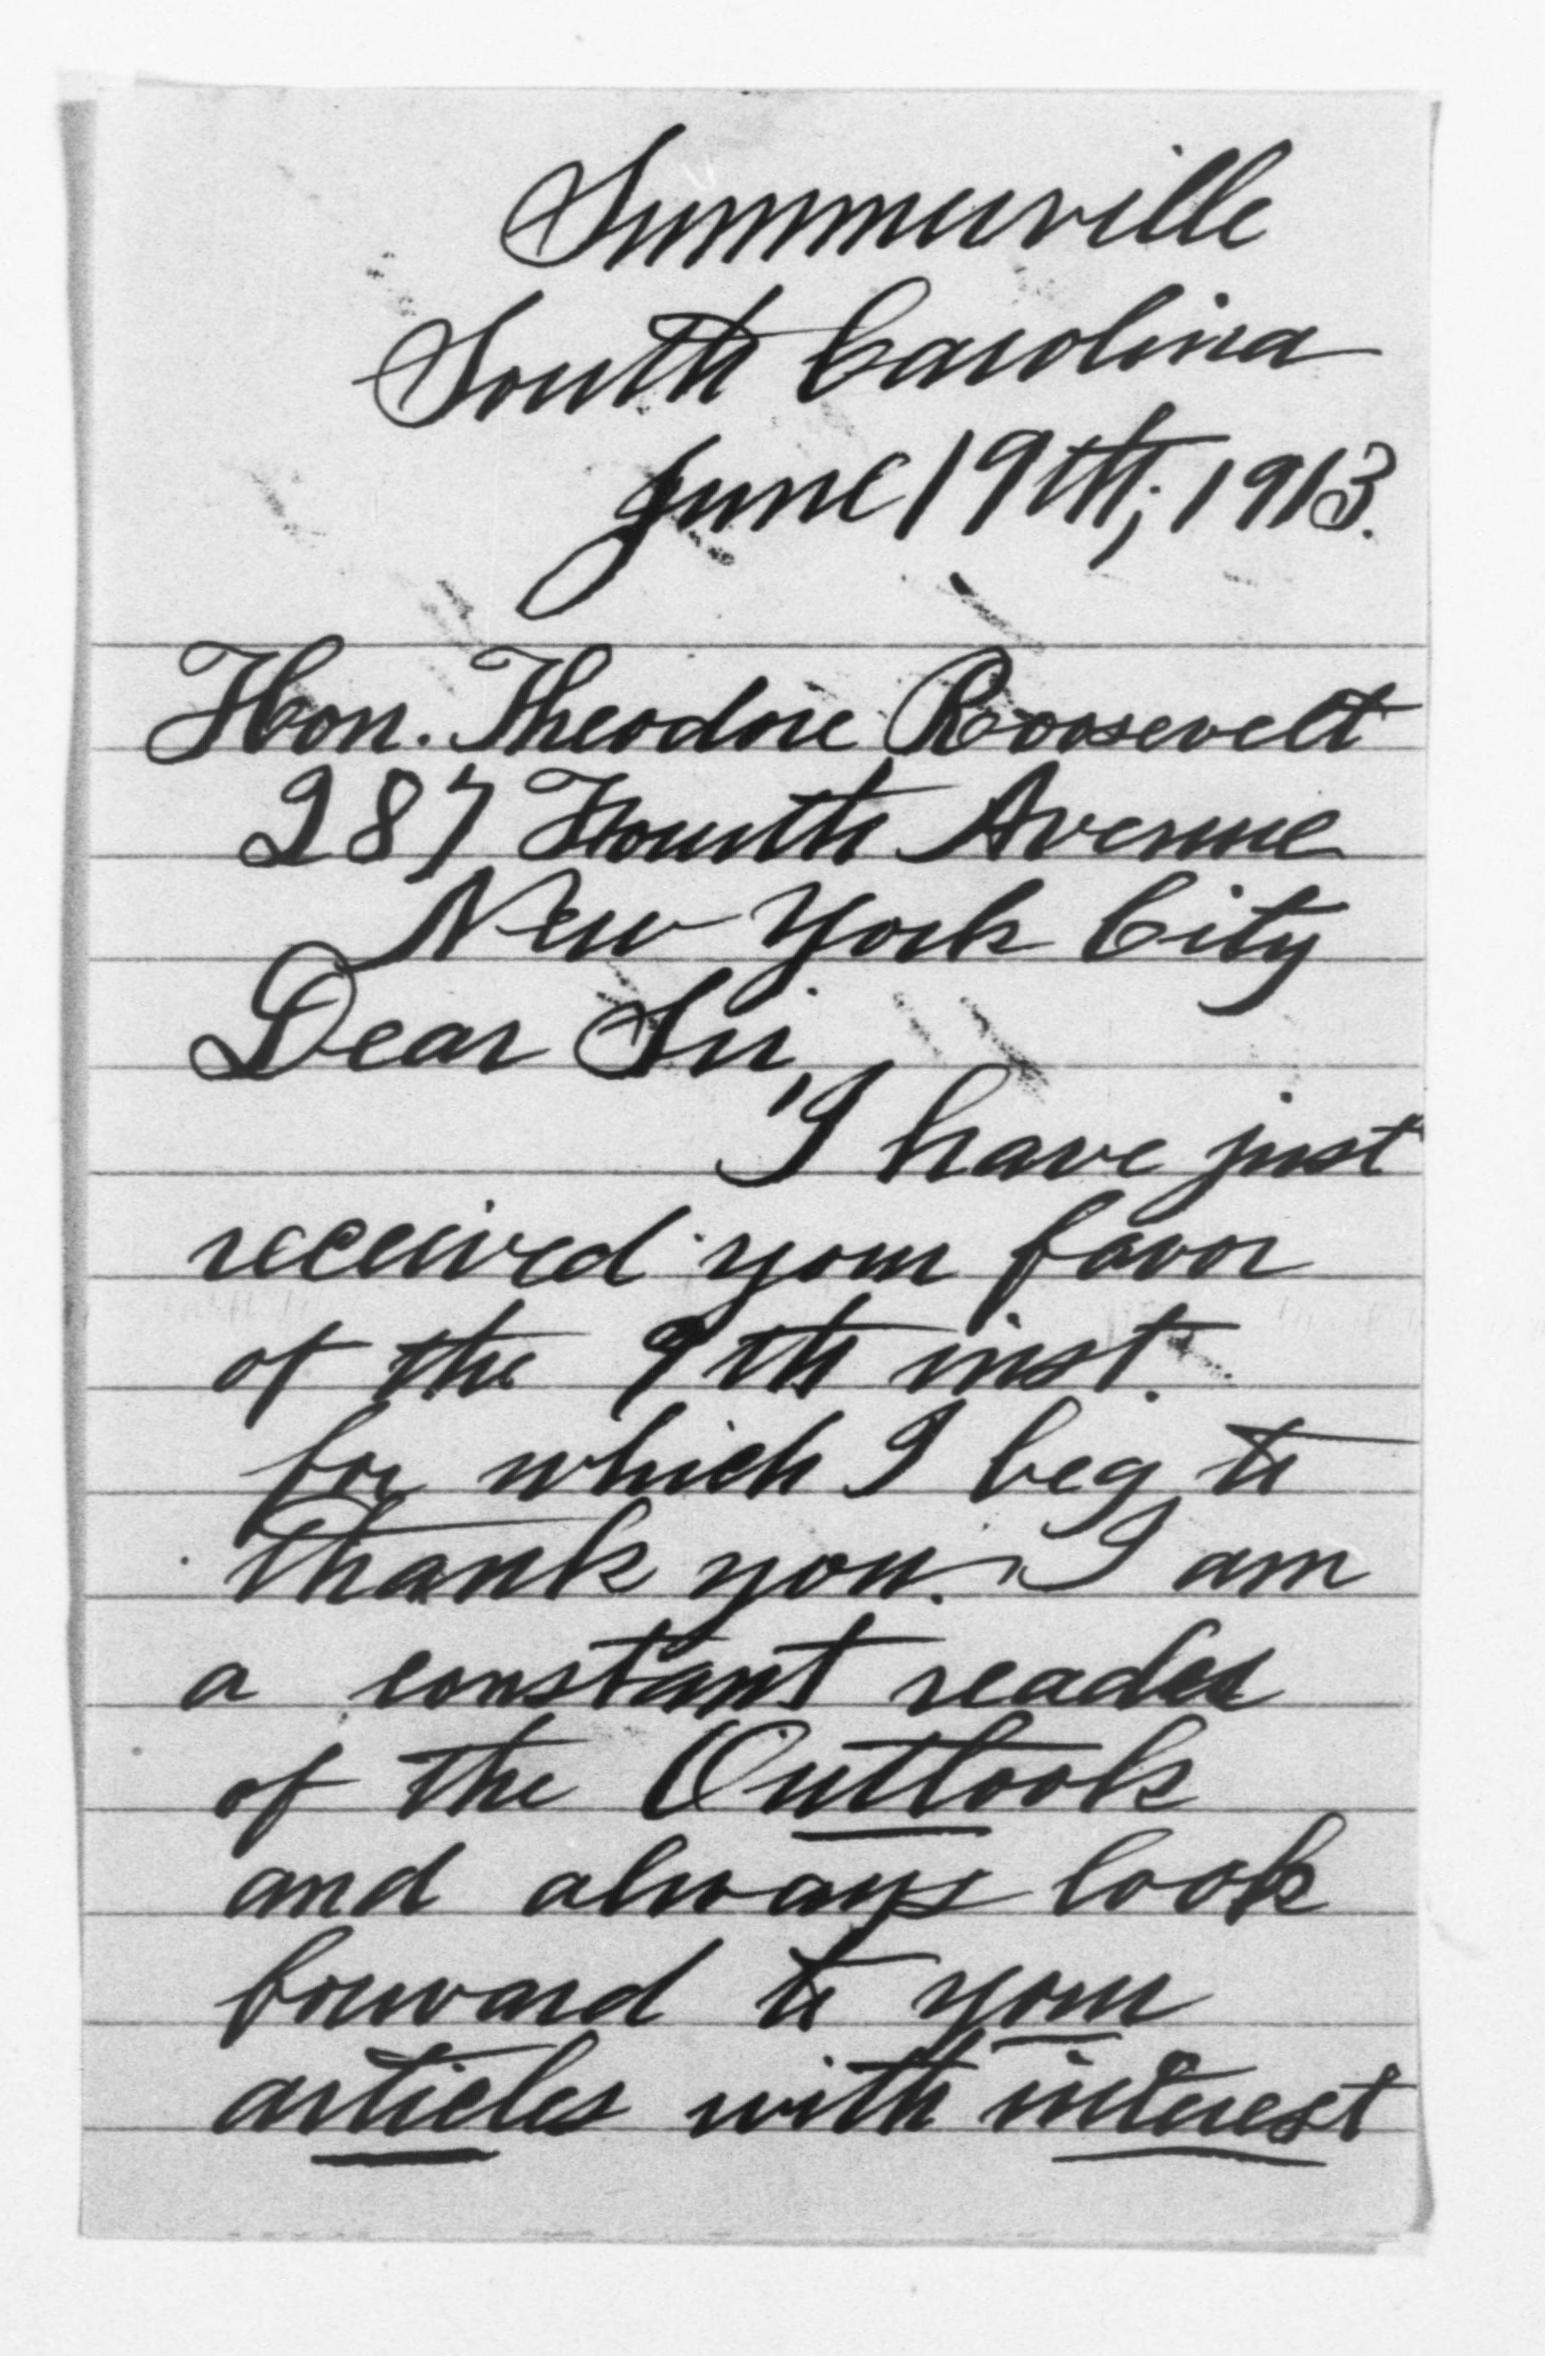 Summerville
South Carolina
June 19th, 1913.
Hon. Theodore Roosevelt
287 Fourth Avenue
New York City
Dear Sir,
I have just
received your favor
of the 9th inst.
for which I beg to
thank you. I am
a constant reader
of the Outlook
and always look
forward to your
articles with interest